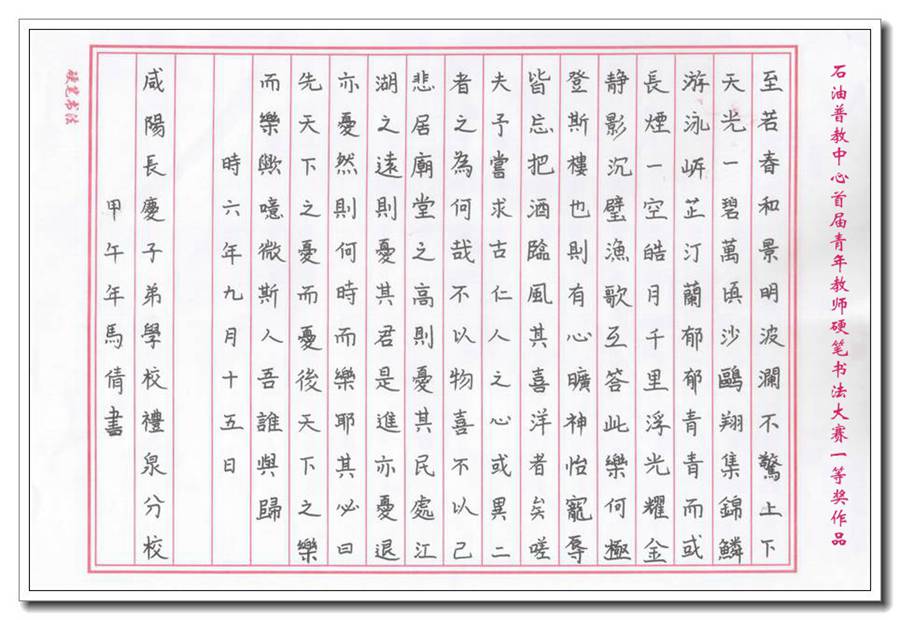 石油普教中心首届青年教师硬笔书法大赛一等奖作品
至若春和景明波瀾不驚上下
天光一碧萬頃沙鷗翔集錦鱗
游泳岸芷汀蘭郁郁青青而或
長煙一空皓月千里浮光耀金
静影沉璧漁歌互答此樂何極
登斯樓也則有心曠神怡寵辱
皆忘把酒臨風其喜洋者矣嗟
夫予嘗求古仁人之心或異二
者之為何哉不以物喜不以己
悲居廟堂之高則憂其民處江
湖之遠則憂其君是進亦憂退
亦憂然則何時而樂耶其必曰
先天下之憂而憂後天下之樂
而樂歟噫微斯人吾誰與歸
時六年九月十五日
咸陽長慶子弟學校禮泉分校
甲午年馬倩書
硬笔书法